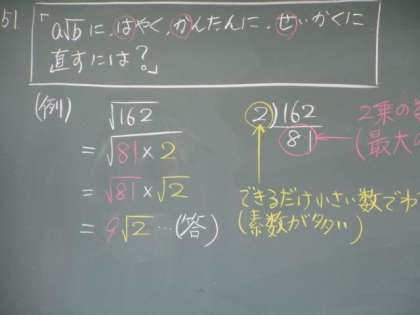 51.
「a√bに、はやく、かんたんに、せいかくに
直すには？」
(例)
√162
= √81×2
= √81×√2
= 9√2 …(答)
2)162
81
2乗の
(最大の
できるだけ小さい数でわ
(素数が多い)